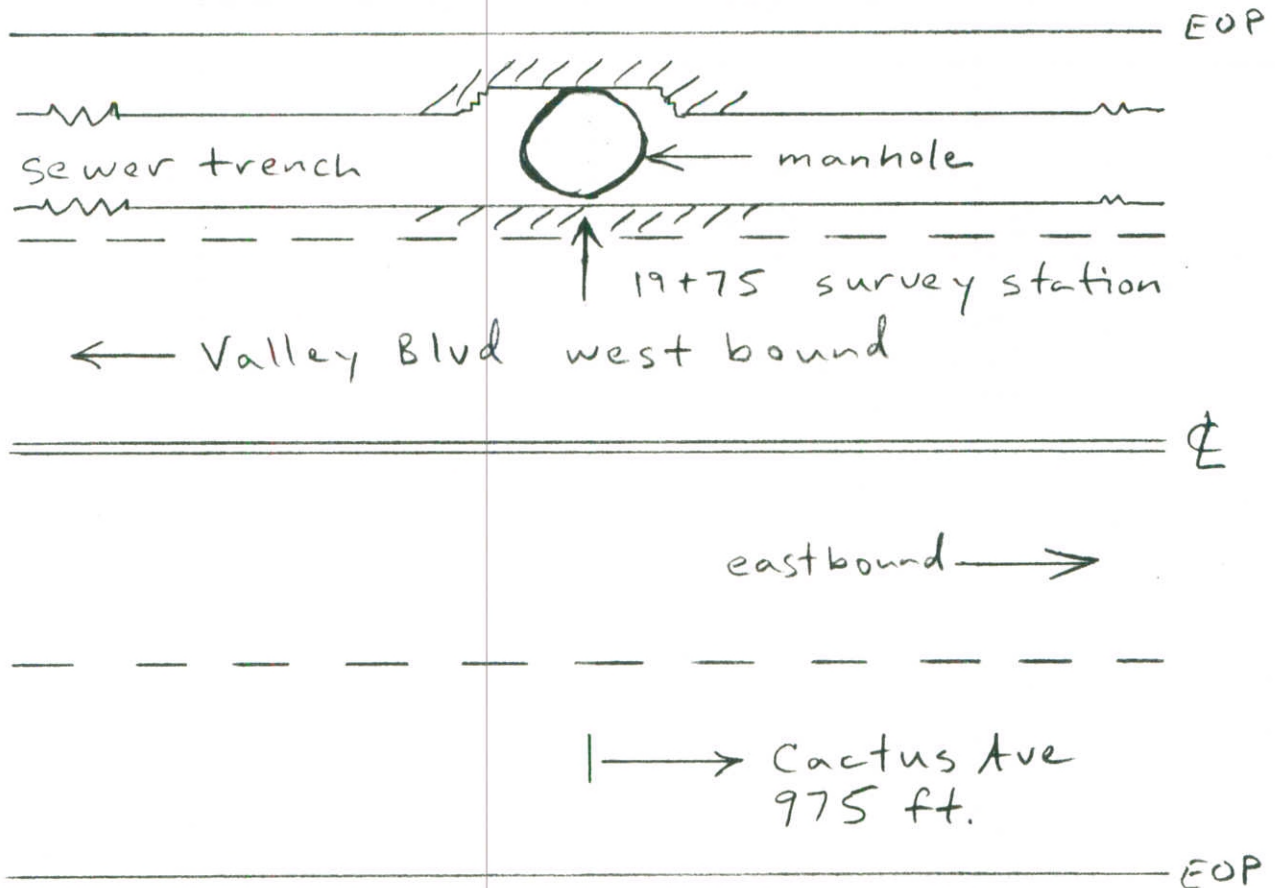 EOP
sewer trench
manhole
19+75 survey station
Valley Blvd west bound
℄
eastbound
Cactus Ave
975 ft.
EOP